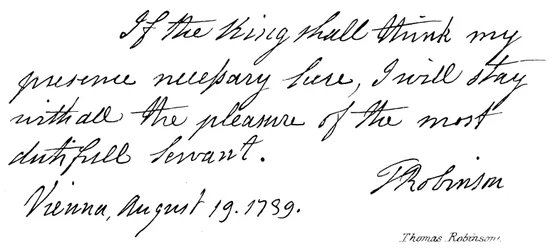 If the King shall think my
presence neceſsary here, I will stay
with all the pleasure of the most
dutifull Servant.
TRobinson
Vienna, August 19. 1739.
Thomas Robinson.